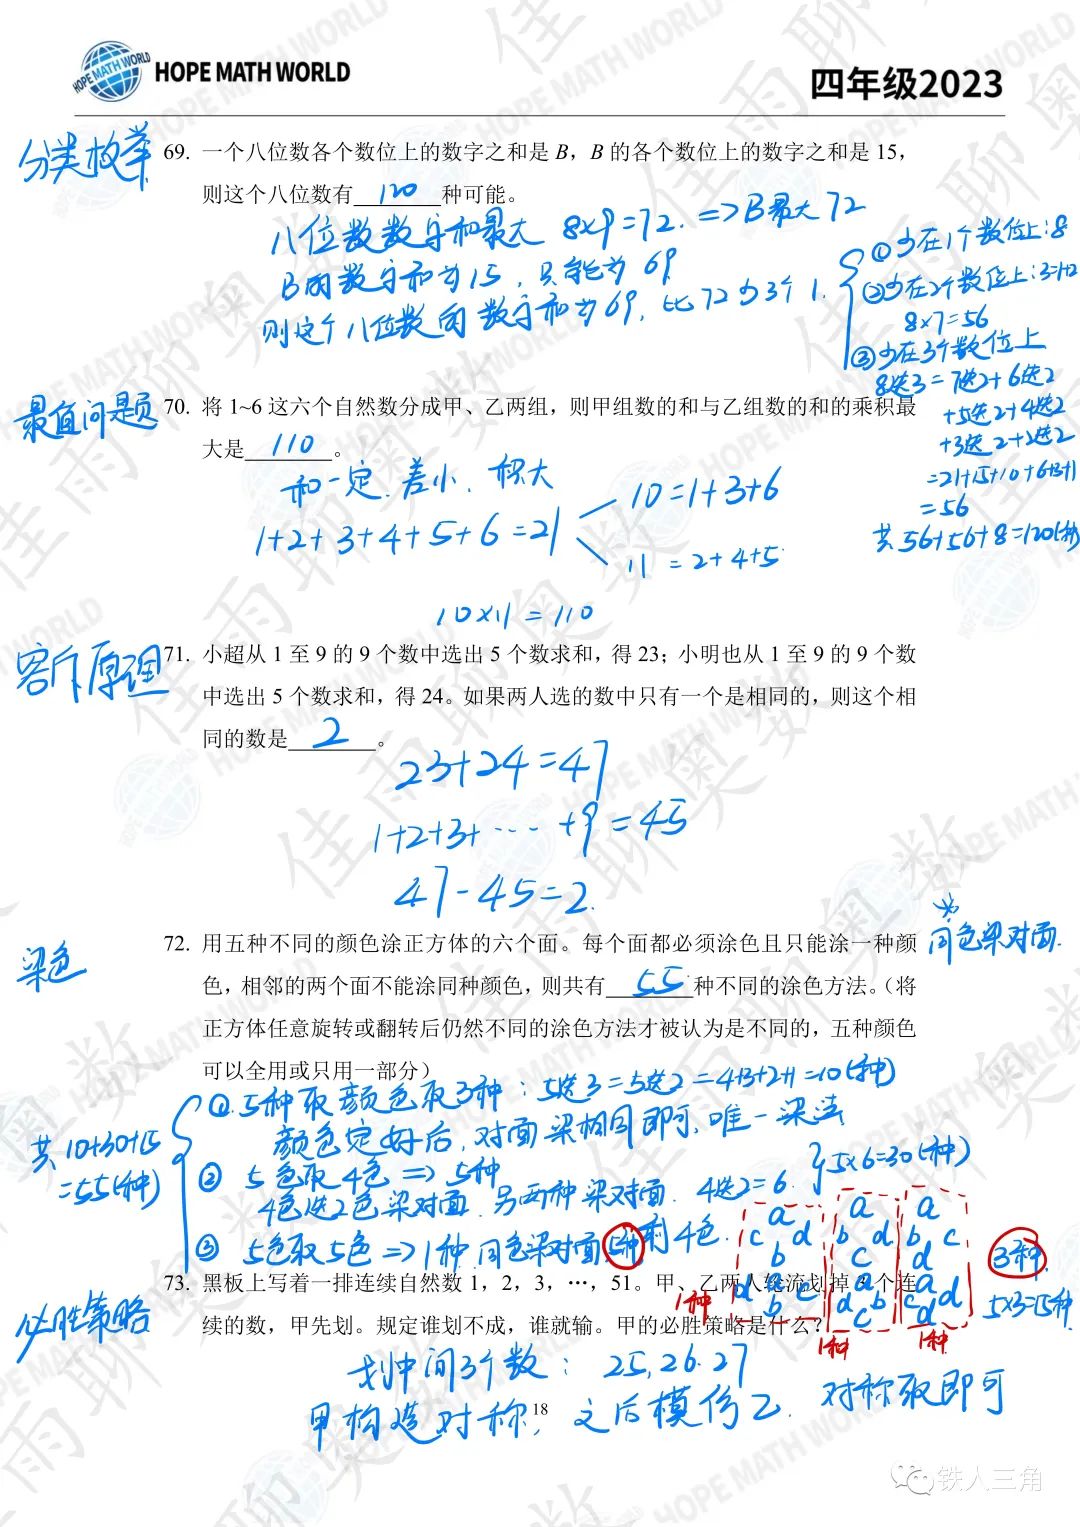 HOPE MATH WORLD
四年级2023
分类枚举
69. 一个八位数各个数位上的数字之和是 B，B 的各个数位上的数字之和是 15，
则这个八位数有 120 种可能。
八位数数字和最大 8×9=72. ⇒B最大72
B的数字和为15，只能为 69
则这个八位数的数字和为69，比72少3个1.
①少在1个数位上:8
②少在2个数位上:3=1+2
8×7=56
③少在3个数位上
8选3=7选2+6选2
+5选2+4选2
+3选2+2选2
=21+15+10+6+3+1
=56
共56+56+8=120(种)
最值问题
70. 将 1~6 这六个自然数分成甲、乙两组，则甲组数的和与乙组数的和的乘积最
大是 110 。
和一定. 差小. 积大
1+2+3+4+5+6=21
10=1+3+6
11=2+4+5
10×11=110
容斥原理
71. 小超从 1 至 9 的 9 个数中选出 5 个数求和，得 23；小明也从 1 至 9 的 9 个数
中选出 5 个数求和，得 24。如果两人选的数中只有一个是相同的，则这个相
同的数是 2 。
23+24=47
1+2+3+…+9=45
47-45=2.
染色
72. 用五种不同的颜色涂正方体的六个面。每个面都必须涂色且只能涂一种颜
色，相邻的两个面不能涂同种颜色，则共有 55 种不同的涂色方法。（将
正方体任意旋转或翻转后仍然不同的涂色方法才被认为是不同的，五种颜色
可以全用或只用一部分）
同色染对面.
①5种取颜色取3种：5选3=5选2=4+3+2+1=10(种)
颜色定好后，对面染相同即可，唯一染法
②5色取4色⇒5种
4色选2色染对面．另两种染对面．4选2=6.
5×6=30(种)
③5色取5色⇒1种 同色染对面5种 剩4色.
共10+30+15
=55(种)
a
c d
b
d a c
b
1种
a
b d
c
a
d b
c
1种
a
b c
d
a
c d
d
1种
3种
5×3=15种
必胜策略
73. 黑板上写着一排连续自然数 1，2，3，…，51。甲、乙两人轮流划掉 3 个连
续的数，甲先划。规定谁划不成，谁就输。甲的必胜策略是什么？
划中间3个数： 25,26.27
甲构造对称，之后模仿乙．对称取即可
18
铁人三角
佳雨聊奥数